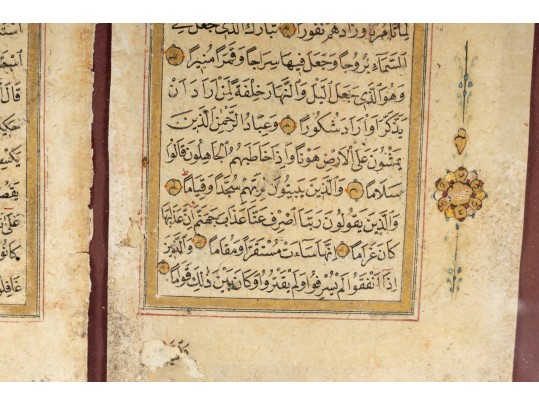 لما تأمرنا وزادهم نفورا تبارك الذي جعل في
السماء بروجا وجعل فيها سراجا وقمرا منيرا
وهو الذي جعل اليل والنهار خلفة لمن اراد ان
يذكر او اراد شكورا وعباد الرحمن الذين
يمشون على الارض هونا واذا خاطبهم الجاهلون قالوا
سلاما والذين يبيتون لربهم سجدا وقياما
والذين يقولون ربنا اصرف عنا عذاب جهنم ان عذابها
كان غراما انها ساءت مستقرا ومقاما والذين
اذا انفقوا لم يسرفوا ولم يقتروا وكان بين ذلك قواما